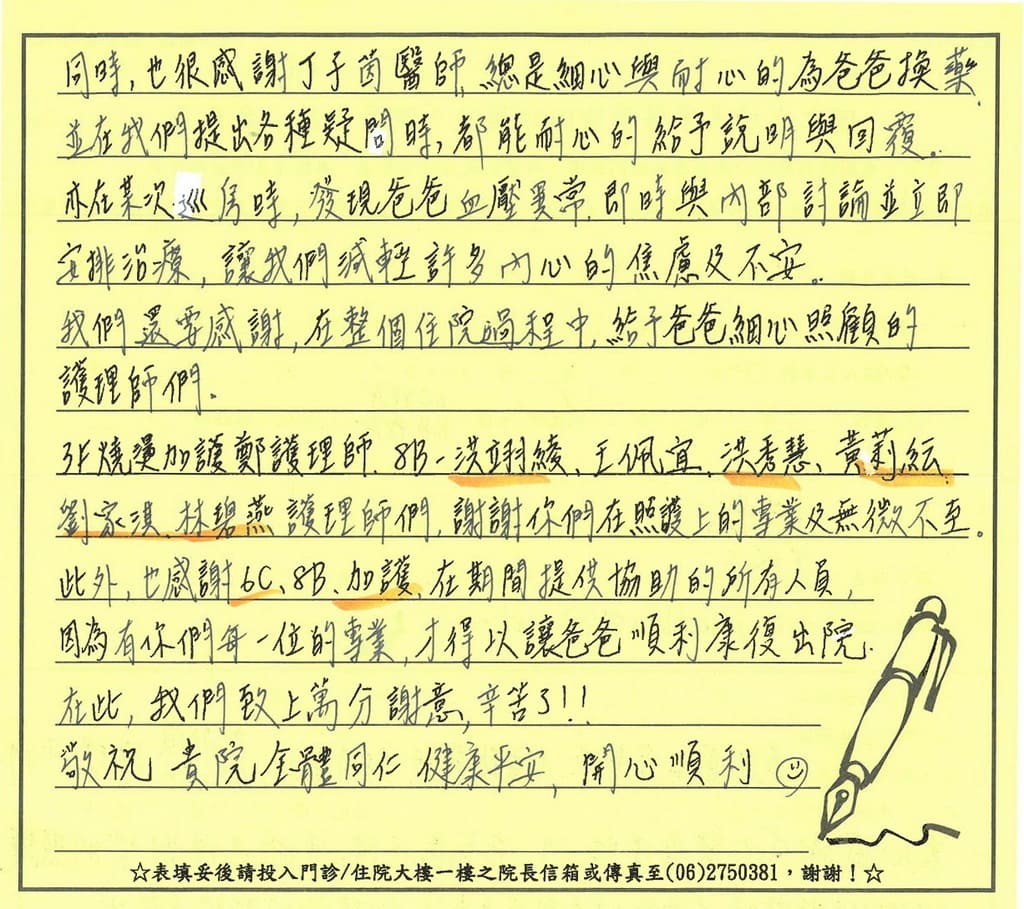 同時,也很感謝丁子茵醫師,總是細心與耐心的為爸爸換藥,
並在我們提出各種疑問時,都能耐心的給予說明與回覆。
亦在某次巡房時,發現爸爸血壓異常,即時與內部討論並立即
安排治療,讓我們減輕許多內心的焦慮及不安。
我們還要感謝,在整個住院過程中,給予爸爸細心照顧的
護理師們。
3F燒燙加護鄭護理師、8B-洪翊綾、王佩宜、洪秀慧、黃莉紜
劉家淇、林碧燕護理師們,謝謝你們在照護上的專業及無微不至。
此外,也感謝6C、8B、加護,在期間提供協助的所有人員,
因為有你們每一位的專業,才得以讓爸爸順利康復出院.
在此,我們致上萬分謝意,辛苦了!!
敬祝 貴院全體同仁 健康平安,開心順利
☆表填妥後請投入門診/住院大樓一樓之院長信箱或傳真至(06)2750381,謝謝!☆